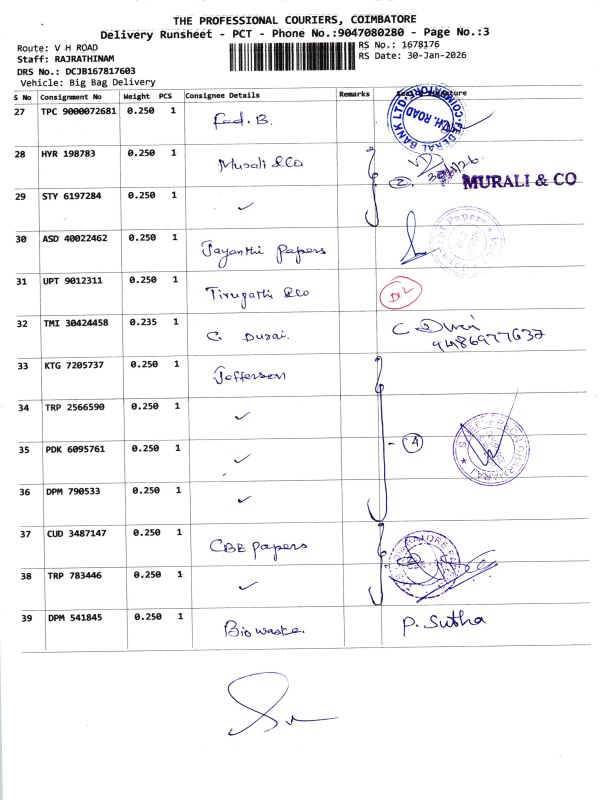 THE PROFESSIONAL COURIERS, COIMBATORE
Delivery Runsheet - PCT - Phone No.:9047080280 - Page No.:3
Route: V H ROAD
RS No.: 1678176
Staff: RAJRATHINAM
RS Date: 30-Jan-2026
DRS No.: DCJB167817603
Vehicle: Big Bag Delivery
S No Consignment No Weight PCS Consignee Details Remarks
27 TPC 9000072681 0.250 1 Fed. B.
FEDERAL BANK LTD
V.H. ROAD
28 HYR 198783 0.250 1 Murali &Co
MURALI & CO
29 STY 6197284 0.250 1 ✓
2
30 ASD 40022462 0.250 1 Jayanthi Papers
31 UPT 9012311 0.250 1 Tirupathi &Co
32 TMI 30424458 0.235 1 C Durai.
C Durai
9486977637
33 KTG 7205737 0.250 1 Jefferson
34 TRP 2566590 0.250 1 ✓
35 PDK 6095761 0.250 1 ✓
- 4
36 DPM 790533 0.250 1 ✓
37 CUD 3487147 0.250 1 CBE papers
38 TRP 783446 0.250 1 ✓
39 DPM 541845 0.250 1 Bio waste.
P. Sutha